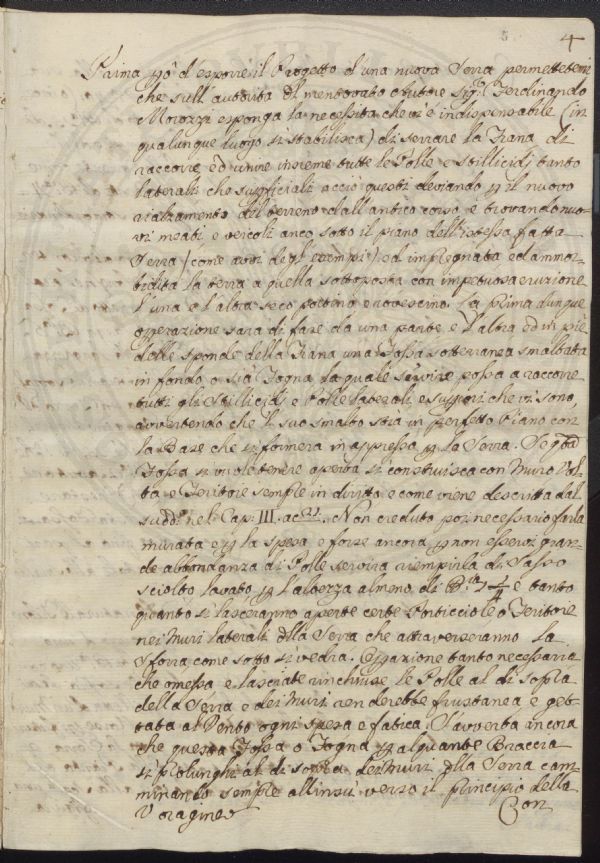 4
Prima però d'esporre il Progetto d'una nuova Serra permettetemi
che sull'autorità del mentovato autore Sig.r Ferdinando
Morozzi esponga la necessità che vi è indispensabile (in
qualunque luogo si stabilisca) di serrare la Frana di
raccorre, ed unire insieme tutte le Polle e stillicidi tanto
laterali che superficiali acciò questi deviando p il nuovo
rialzamento del terreno dall'antico corso e trovando nuo-
vi meati e veicoli anco sotto il piano dell'istessa fatta
Serra (come avvi degl'esempi) ed impregnata ed ammor-
bidita la terra a quella sottoposta con impetuosa eruzione
l'una e l'altra seco portino e rovescino. La prima dunque
operazione sarà di fare da una parte e l'altra ed in piè
delle sponde della Frana una Fossa sotterranea smaltata
in fondo, o sia Fogna la quale servire possa a raccorre
tutti gli Stillicidi e Polle laterali e superiori che vi sono,
avvertendo che il suo smalto stia in perfetto Piano con
la Base che si formerà in appresso p la Serra. Se q.ta
Fossa si vuole tenere aperta si costruisca con Muro Vol-
ta e Feritore sempre in diritto e come viene descritto dal
sudd.o nel Cap: III. ac 21. Non creduto poi necessario farla
murata e p la spesa e forse ancora p non esservi gran-
de abbondanza di Polle servirà riempirla di Sasso
sciolto lavato p l'altezza almeno di B.cia e tanto
quanto si lasceranno aperte certe Porticciole o Feritore
nei Muri laterali della Serra che attraverseranno la
Sforra come sotto si vedrà. Operazione tanto necessaria
che omessa e lasciate rinchiuse le Polle al di sopra
della Serra e dei Muri renderebbe frustanea e get-
tata al Vento ogni spesa e fatica. S'avverta ancora
che questa Fossa o Fogna p alquante Braccia
si prolunghi al di sopra dei Muri della Serra cam-
minando sempre all'insù verso il principio della
Voragine
Con